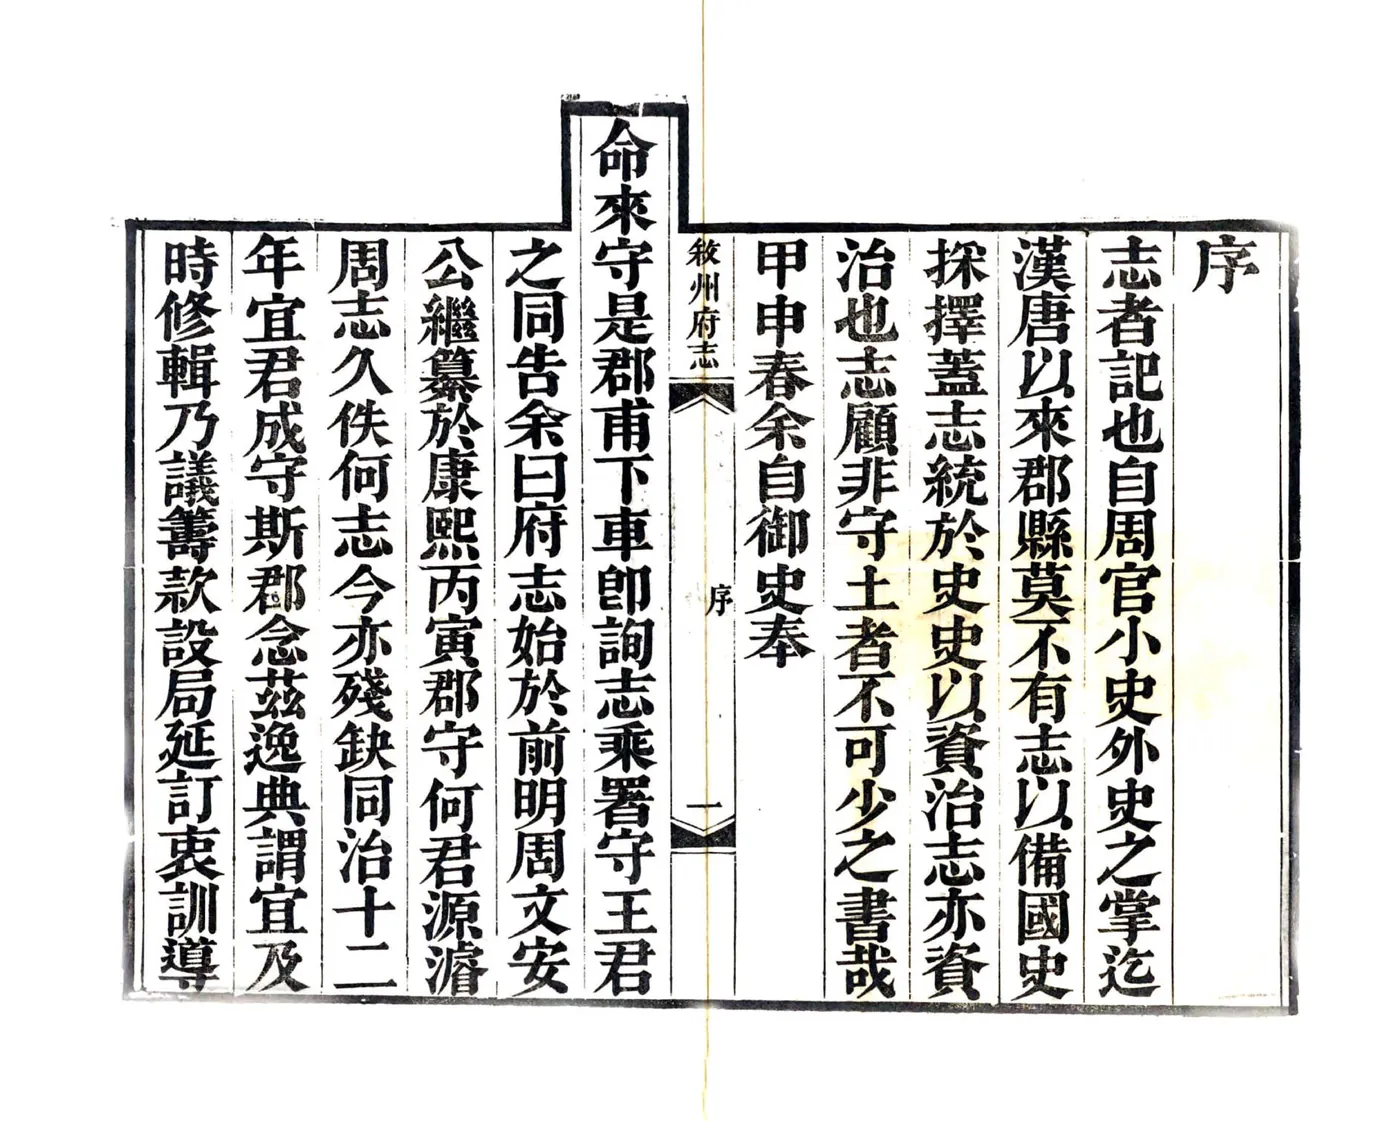 序
志者記也自周官小史外史之掌迄
漢唐以來郡縣莫不有志以備國史
採擇蓋志統於史史以資治志亦資
治也志顧非守土者不可少之書哉
甲申春余自御史奉
敘州府志
序
一
命來守是郡甫下車卽詢志乘署守王君
之同告余曰府志始於前明周文安
公繼纂於康熙丙寅郡守何君源濬
周志久佚何志今亦殘缺同治十二
年宜君成守斯郡念茲逸典謂宜及
時修輯乃議籌款設局延訂衷訓導